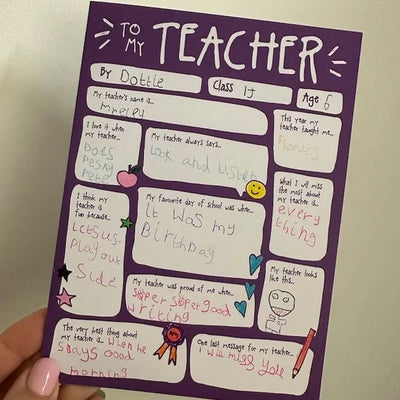 TO MY TEACHER
By Dottie
Class 1J
Age 6
My teacher's name is...
I love it when my teacher...
Does
Pesky
Pete
My teacher always says...
look and listen
This year my teacher taught me...
Phonics
I think my teacher is fun because...
Lets us
Play out
Side
My favourite day of school was when...
it was my
Birthday
What I will miss the most about my teacher is...
every
thing
My teacher was proud of me when...
I did
super super good
writing
My teacher looks like this...
The very best thing about my teacher is... When he
says good
morning
One last message for my teacher...
I will miss you